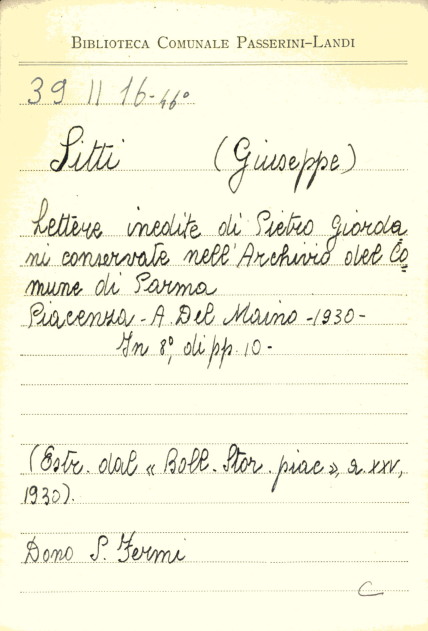 BIBLIOTECA COMUNALE PASSERINI-LANDI
39 II 16-46°
Sitti (Giuseppe)
Lettere inedite di Pietro Giorda
ni conservate nell'Archivio del Co=
mune di Parma
Piacenza - A. Del Maino - 1930 -
In 8°, di pp. 10 -
(Estr. dal « Boll. Stor. piac », a. XXV,
1930).
Dono S. Fermi
C